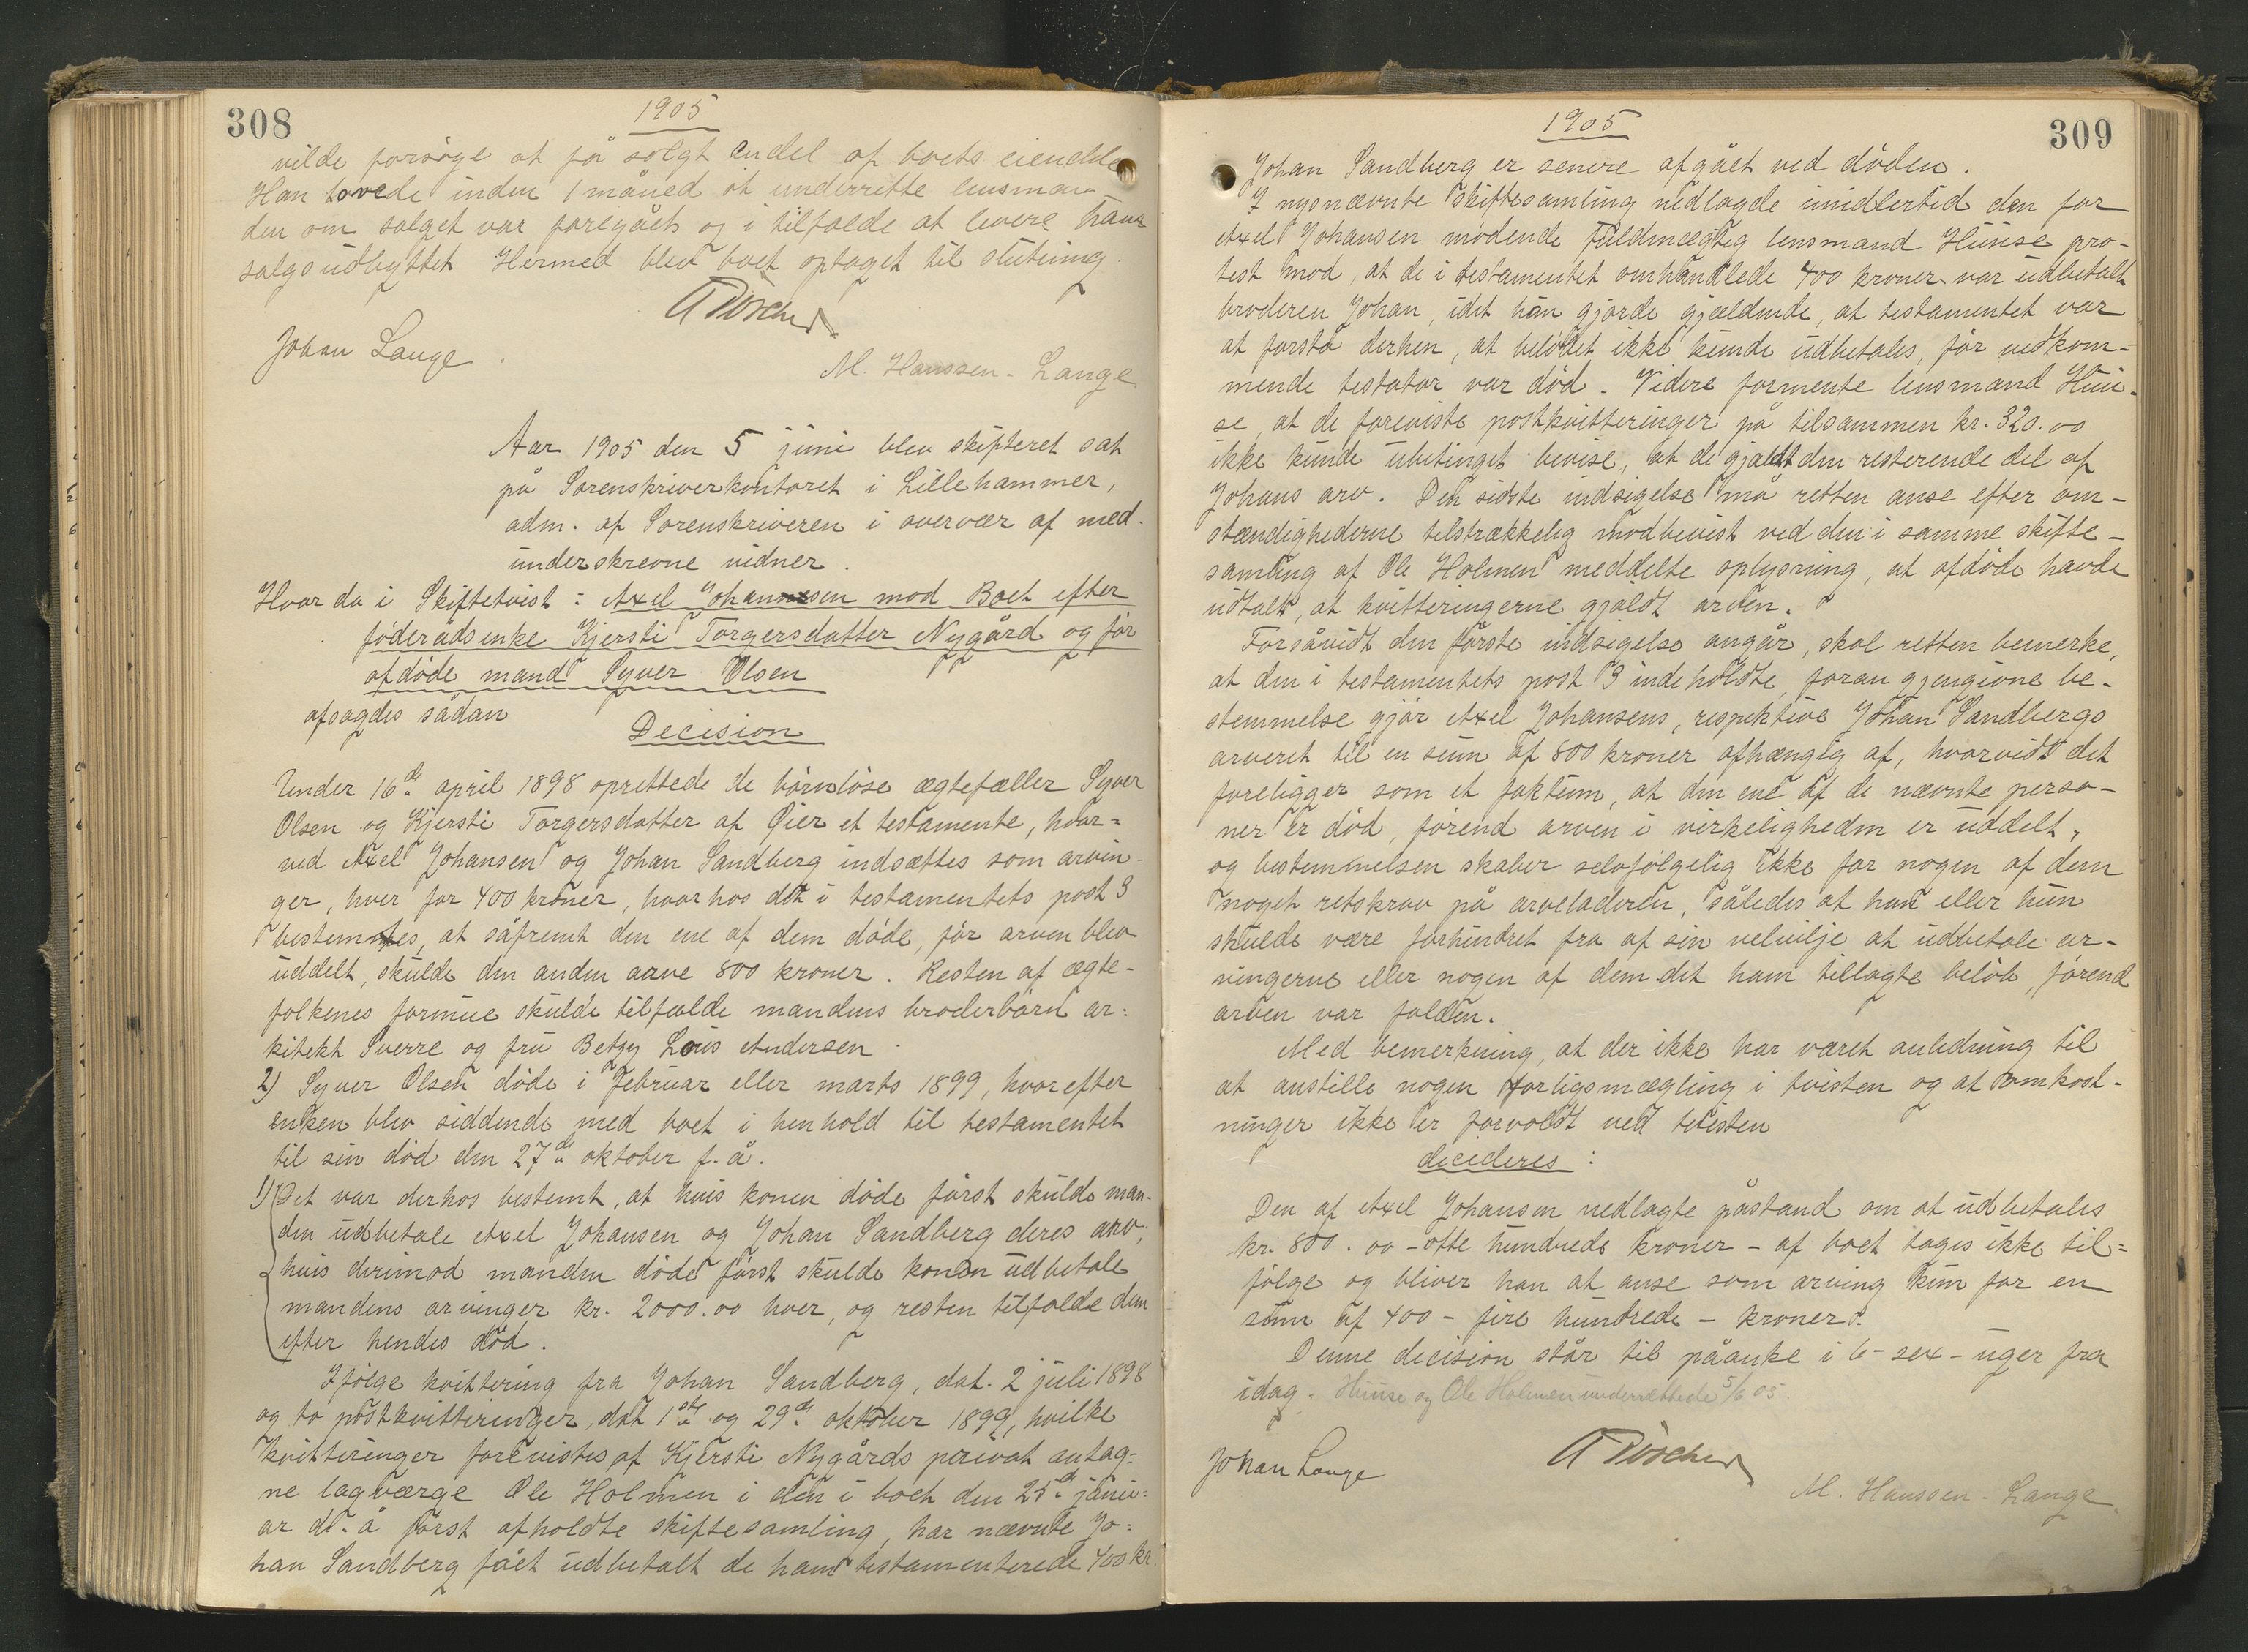 308
1905
vilde forsøge at få solgt endel af boets eiendele
Han lovede inden 1 måned at underrette lensman-
den om salget var foregået og i tilfælde at levere ham
salgsudbyttet Hermed blev boet optaget til slutning.
Johan Lange
M. Hanssen-Lange
Aar 1905 den 5 juni blev skifteret sat
på Sorenskriverkontoret i Lillehammer,
adm. af Sorenskriveren i overvær af med-
underskrevne vidner.
Hvor da i Skiftetvist: Axel Johannsen mod Boet efter
føderådsenke Kjersti Torgersdatter Nygård og før
afdøde mand Syver Olsen
afsagdes sådan
Decision
Under 16de april 1898 oprettede de børnløse ægtefæller Syver
Olsen og Kjersti Torgersdatter af Øier et testamente, hvor=
ved Axel Johansen og Johan Sandberg indsættes som arvin-
ger, hver for 400 kroner, hvorhos det i testamentets post 3
bestemtes, at såfremt den ene af dem døde, før arven blev
uddelt, skulde den anden arve 800 kroner. Resten af ægte-
folkenes formue skulde tilfalde mandens broderbørn ar=
kitekt Sverre og fru Betzy Louis Andersen.
2) Syver Olsen døde i februar eller marts 1899, hvorefter
enken blev siddende med boet i henhold til testamentet
til sin død den 27de oktober f. å.
1) Det var derhos bestemt, at hvis konen døde først skulde man-
den udbetale Axel Johansen og Johan Sandberg deres arv,
hvis derimod manden døde først skulde konen udbetale
mandens arvinger kr. 2000.00 hver, og resten tilfalde dem
efter hendes død.
Ifølge kvittering fra Johan Sandberg, dat. 2 juli 1898
og to postkvitteringer, dat 1ste og 29de oktober 1899, hvilke
kvitteringer forevistes af Kjersti Nygårds privat antag=
ne lagværge Ole Holmen i den i boet den 25de janu=
ar d. å først afholdte skiftesamling, har nævnte Jo=
han Sandberg fået udbetalt de ham testamenterede 400 kr.
1905
309
Johan Sandberg er senere afgået ved døden.
I nysnævnte skiftesamling nedlagde imidlertid den for
Axel Johansen mødende fuldmægtig lensmand Huuse pro-
test mod, at de i testamentet omhandlede 400 kroner var udbetalt
broderen Johan, idet han gjorde gjældende, at testamentet var
at forstå derhen, at beløbet ikke kunde udbetales, før vedkom-
mende testator var død. Videre formente lensmand Huu-
se, at de foreviste postkvitteringer på tilsammen kr. 320.00
ikke kunde ubetinget bevise, at de gjaldt den resterende del af
Johans arv. Den sidste indsigelse må retten anse efter om-
stændighederne tilstrækkelig modbevist ved den i samme skifte-
samling af Ole Holmen meddelte oplysning, at afdøde havde
udtalt, at kvitteringerne gjaldt arven.
Forsåvidt den første indsigelse angår, skal retten bemerke,
at den i testamentets post 3 indeholdte, foran gjengivne be-
stemmelse gjør Axel Johansens, respektive Johan Sandbergs
arveret til en sum af 800 kroner afhængig af, hvorvidt det
foreligger som et faktum, at den ene af de nævnte perso-
ner er død, førend arven i virkeligheden er uddelt,
og bestemmelsen skaber selvfølgelig ikke for nogen af dem
noget retskrav på arveladeren, således at han eller hun
skulde være forhindret fra af sin velvilje at udbetale ar-
vingerne eller nogen af dem det ham tillagte beløb, førend
arven var falden.
Med bemerkning, at der ikke har været anledning til
at anstille nogen forligsmægling i tvisten og at omkost-
ninger ikke er forvoldt ved tvisten
decideres:
Den af Axel Johansen nedlagte påstand om at udbetales
kr. 800.00 - otte hundrede kroner - af boet tages ikke til=
følge og bliver han at anse som arving kun for en
sum af 400 - fire hundrede - kroner.
Denne decision står til påanke i 6 - sex - uger fra
idag. Huuse og Ole Holmen underrettede 5/6 05.
Johan Lange
M. Hanssen-Lange